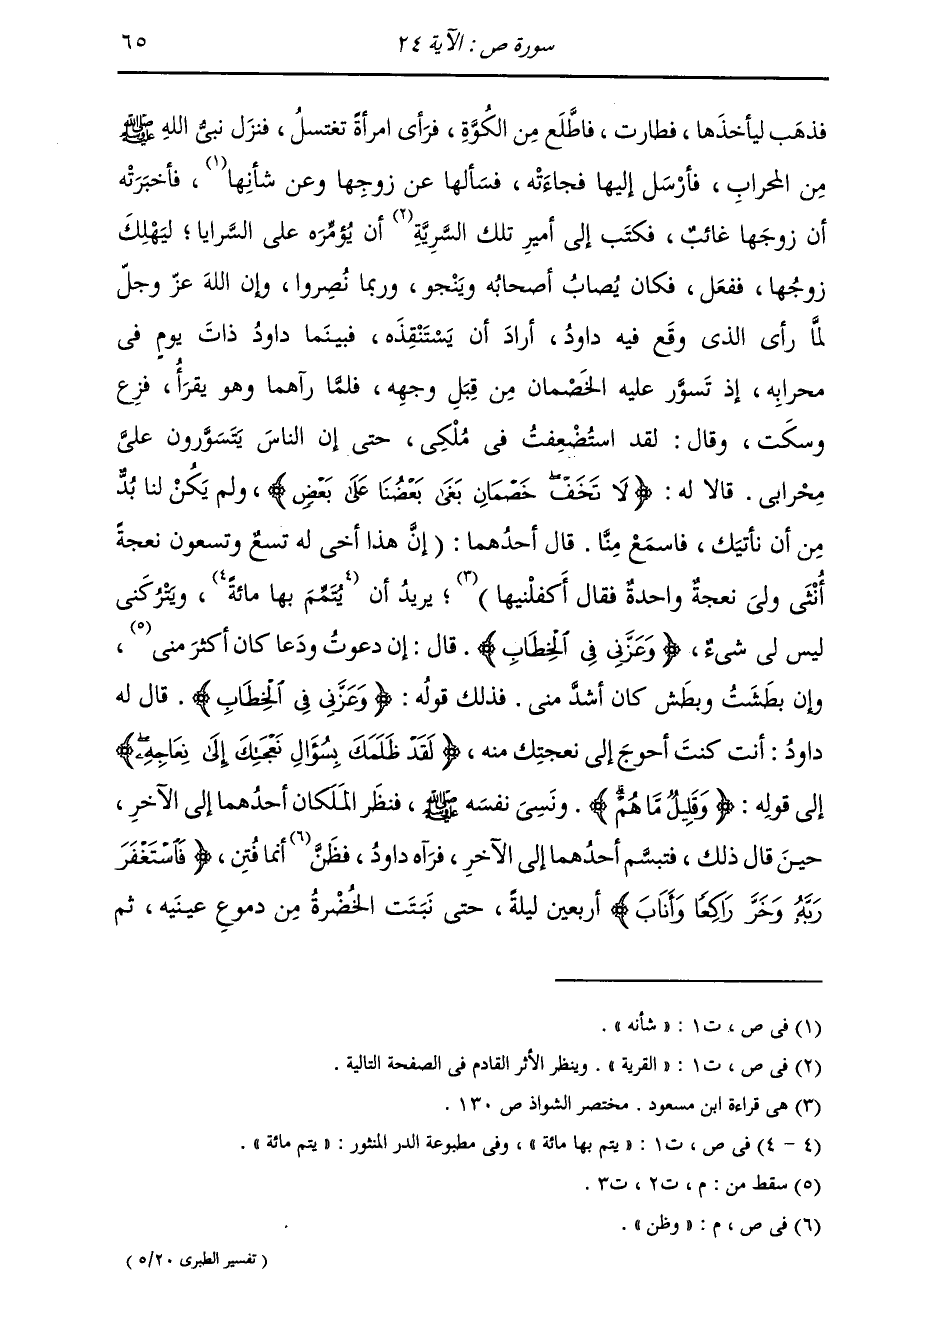 سورة ص : الآية ٢٤
٦٥
فذهَب ليأخذَها ، فطارت ، فاطَّلَع مِن الكُوَّةِ ، فرَأى امرأةً تغتسلُ ، فنزَل نبىُّ اللهِ ﷺ
مِن المحرابِ ، فأرْسَل إليها فجاءَتْه ، فسَألها عن زوجِها وعن شأنِها(١) ، فأخبَرَتْه
أن زوجَها غائبٌ ، فكتَب إلى أميرِ تلك السَّريَّةِ(٢) أن يُؤمِّرَه على السَّرايا ؛ ليَهْلِكَ
زوجُها ، ففعَل ، فكان يُصابُ أصحابُه ويَنْجو ، وربما نُصِروا ، وإن اللهَ عزّ وجلّ
لمَّا رأى الذى وقَع فيه داودُ ، أرادَ أن يَسْتَنْقِذَه ، فبينَما داودُ ذاتَ يومٍ فى
محرابِه ، إذ تَسوَّر عليه الخَصْمان مِن قِبَلِ وجهِه ، فلمَّا رآهما وهو يقرَأُ ، فزِع
وسكَت ، وقال : لقد استُضْعِفتُ فى مُلْكِى ، حتى إن الناسَ يَتَسَوَّرون علىَّ
مِحْرابى . قالا له : ﴿ لَا تَخَفْۖ خَصْمَانِ بَغَىٰ بَعْضُنَا عَلَىٰ بَعْضٍ ﴾ ، ولم يَكُنْ لنا بُدٌّ
مِن أن نأتيَك ، فاسمَعْ مِنَّا . قال أحدُهما : ( إنَّ هذا أخى له تسعٌ وتسعون نعجةً
أُنْثَى ولىَ نعجةٌ واحدةٌ فقال أَكفلْنيها )(٣) ؛ يريدُ أن (٤يُتَمِّمَ بها مائةً٤) ، ويَتْرُكَنى
ليس لى شىءٌ ، ﴿ وَعَزَّنِى فِى ٱلْخِطَابِ ﴾ . قال : إن دعوتُ ودَعا كان أكثرَ منى(٥) ،
وإن بطَشتُ وبطَش كان أشدَّ منى . فذلك قولُه : ﴿ وَعَزَّنِى فِى ٱلْخِطَابِ ﴾ . قال له
داودُ : أنت كنتَ أحوجَ إلى نعجتِك منه ، ﴿ لَقَدْ ظَلَمَكَ بِسُؤَالِ نَعْجَتِكَ إِلَىٰ نِعَاجِهِۦۖ ﴾
إلى قولِه : ﴿ وَقَلِيلٌ مَّا هُمْۗ ﴾ . ونَسِىَ نفسَه ﷺ ، فنظَر المَلَكان أحدُهما إلى الآخرِ ،
حينَ قال ذلك ، فتبسَّم أحدُهما إلى الآخرِ ، فرَآه داودُ ، فظَنَّ(٦) أنما فُتِن ، ﴿ فَٱسْتَغْفَرَ
رَبَّهُۥ وَخَرَّ رَاكِعًا وَأَنَابَ ﴾ أربعين ليلةً ، حتى نَبَتَت الخُضْرةُ مِن دموعِ عينَيه ، ثم
(١) فى ص ، ت١ : « شأنه » .
(٢) فى ص ، ت١ : « القرية » . وينظر الأثر القادم فى الصفحة التالية .
(٣) هى قراءة ابن مسعود . مختصر الشواذ ص ١٣٠ .
(٤ - ٤) فى ص ، ت١ : « يتم بها مائة » ، وفى مطبوعة الدر المنثور : « يتم مائة » .
(٥) سقط من : م ، ت٢ ، ت٣ .
(٦) فى ص ، م : « وظن » .
( تفسير الطبرى ٥/٢٠ )